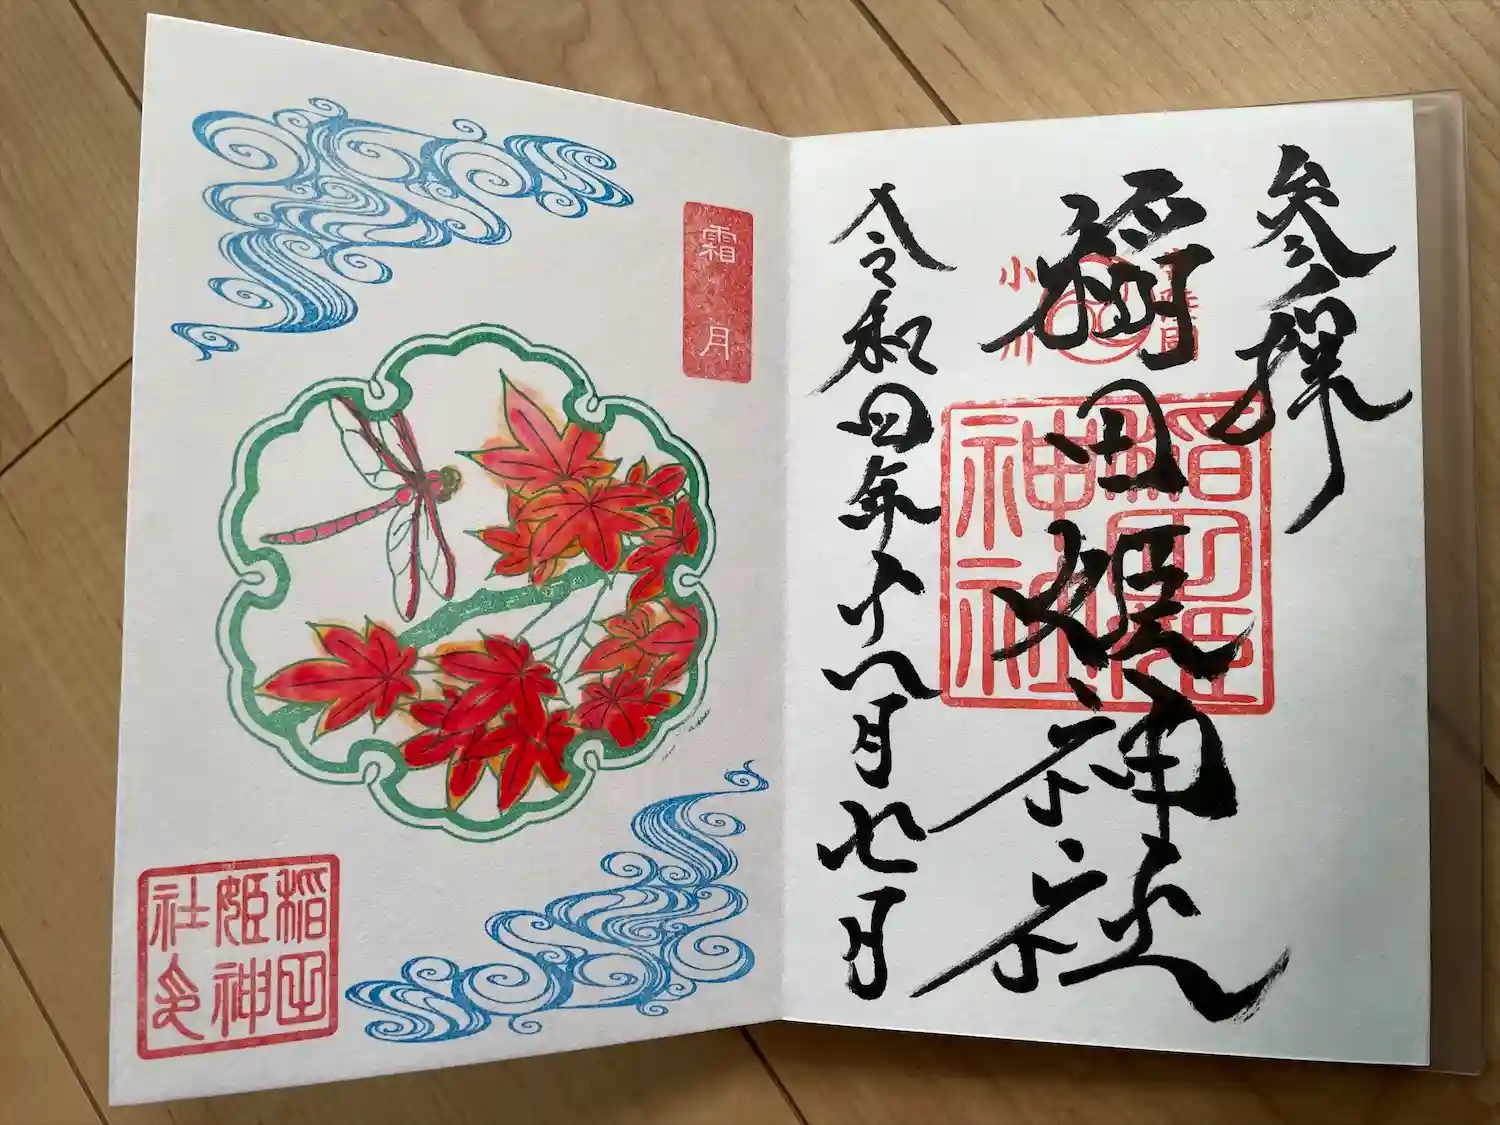 参拝
稲田姫神社
小川
稲田姫
神社
令和四年十一月七日
霜月
稲田
姫神
社印